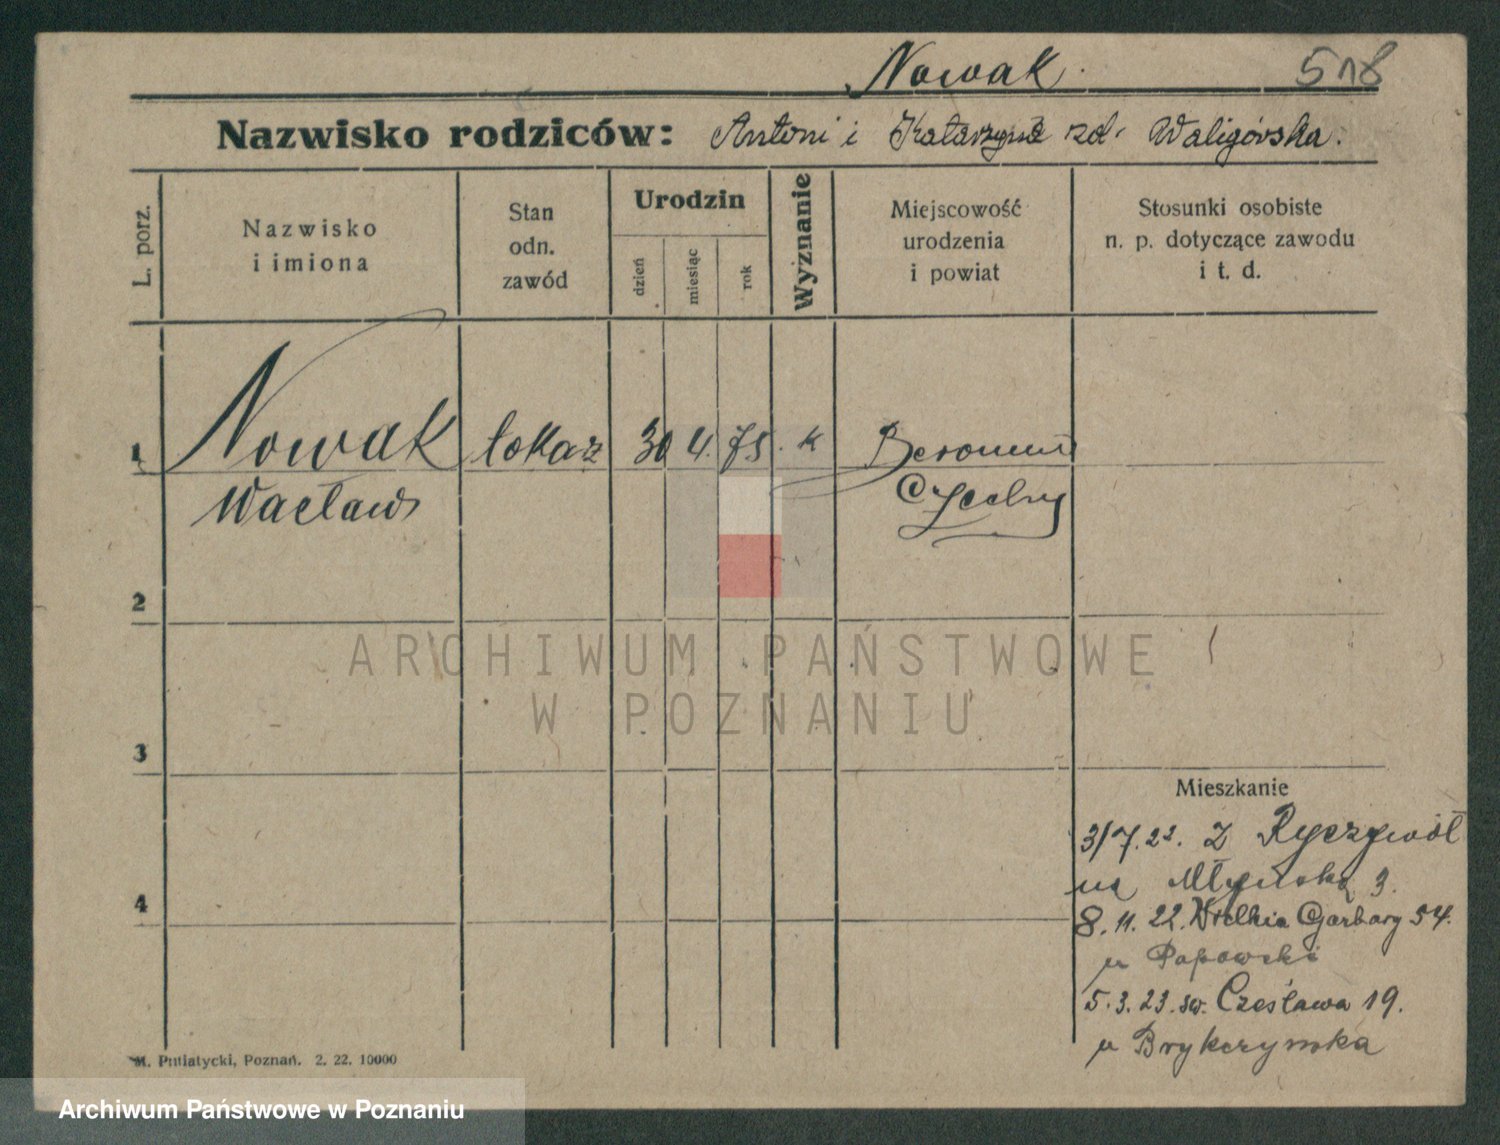 Nowak. 518
Nazwisko rodziców: Antoni i Katarzyna zd. Waligórska.
L. porz.
Nazwisko
i imiona
Stan
odn.
zawód
Urodzin
dzień
miesiąc
rok
Wyznanie
Miejscowość
urodzenia
i powiat
Stosunki osobiste
n. p. dotyczące zawodu
i t. d.
1 Nowak tokarz 30 4. 75. k
Wacław
2
3
4
Mieszkanie
3/7.22. z Ryczywół
na Młyńską 3.
8. 11. 22. Wielkie Garbary 54.
u Popowski
5. 3. 23. św. Czesława 19.
u Brykczyńska
M. Putiatycki, Poznań. 2. 22. 10000
ARCHIWUM PAŃSTWOWE
W POZNANIU
Archiwum Państwowe w Poznaniu